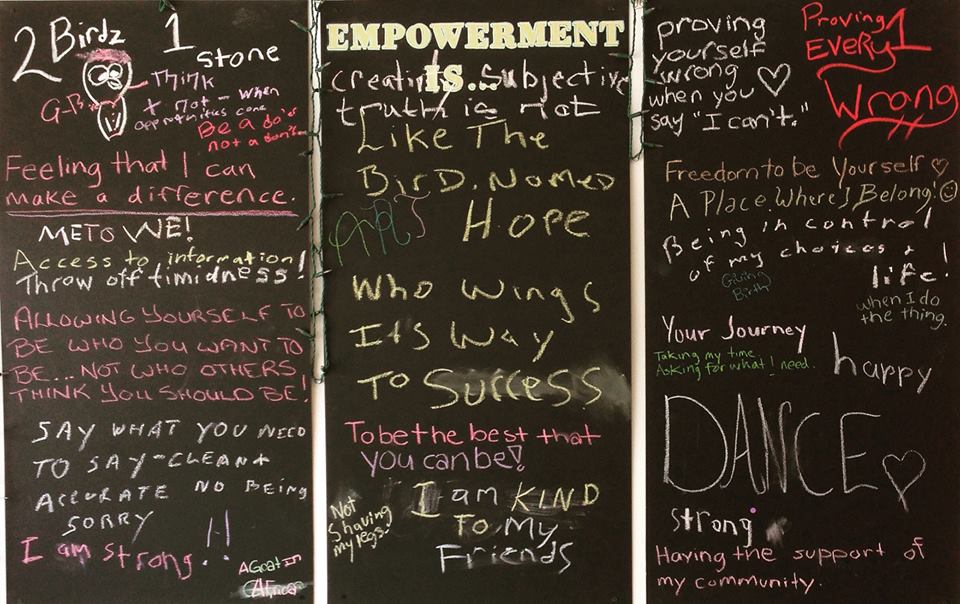 2 Birdz 1 stone
G-Bird
Think
+ not - when
opportunities come
Be a do'er
not a don'ter
Feeling that I can
make a difference.
ME TO WE!
Access to information!
Throw off timidness!
ALLOWING YOURSELF TO
BE WHO YOU WANT TO
BE... NOT WHO OTHERS
THINK YOU SHOULD BE!
SAY WHAT YOU NEED
TO SAY - CLEAN +
ACCURATE NO BEING
SORRY !!
I am strong.
A Goat in
Africa
EMPOWERMENT
IS...
creating subjective
truth is not
Like The
BirD. Nomed
ART
Hope
Who Wings
It's Way
To Success
To be the best that
you can be!
Not
Shaving
my legs.
I am KIND
To My
Friends
proving
yourself
wrong
when you
say "I can't."
Proving
EVERY 1
Wrong
Freedom to be Yourself
A Place Where I Belong!
Being in control
of my choices +
life!
Giving
Birth
when I do
the thing.
Your Journey
Taking my time.
Asking for what I need.
happy
DANCE
strong
Having the support of
my community.